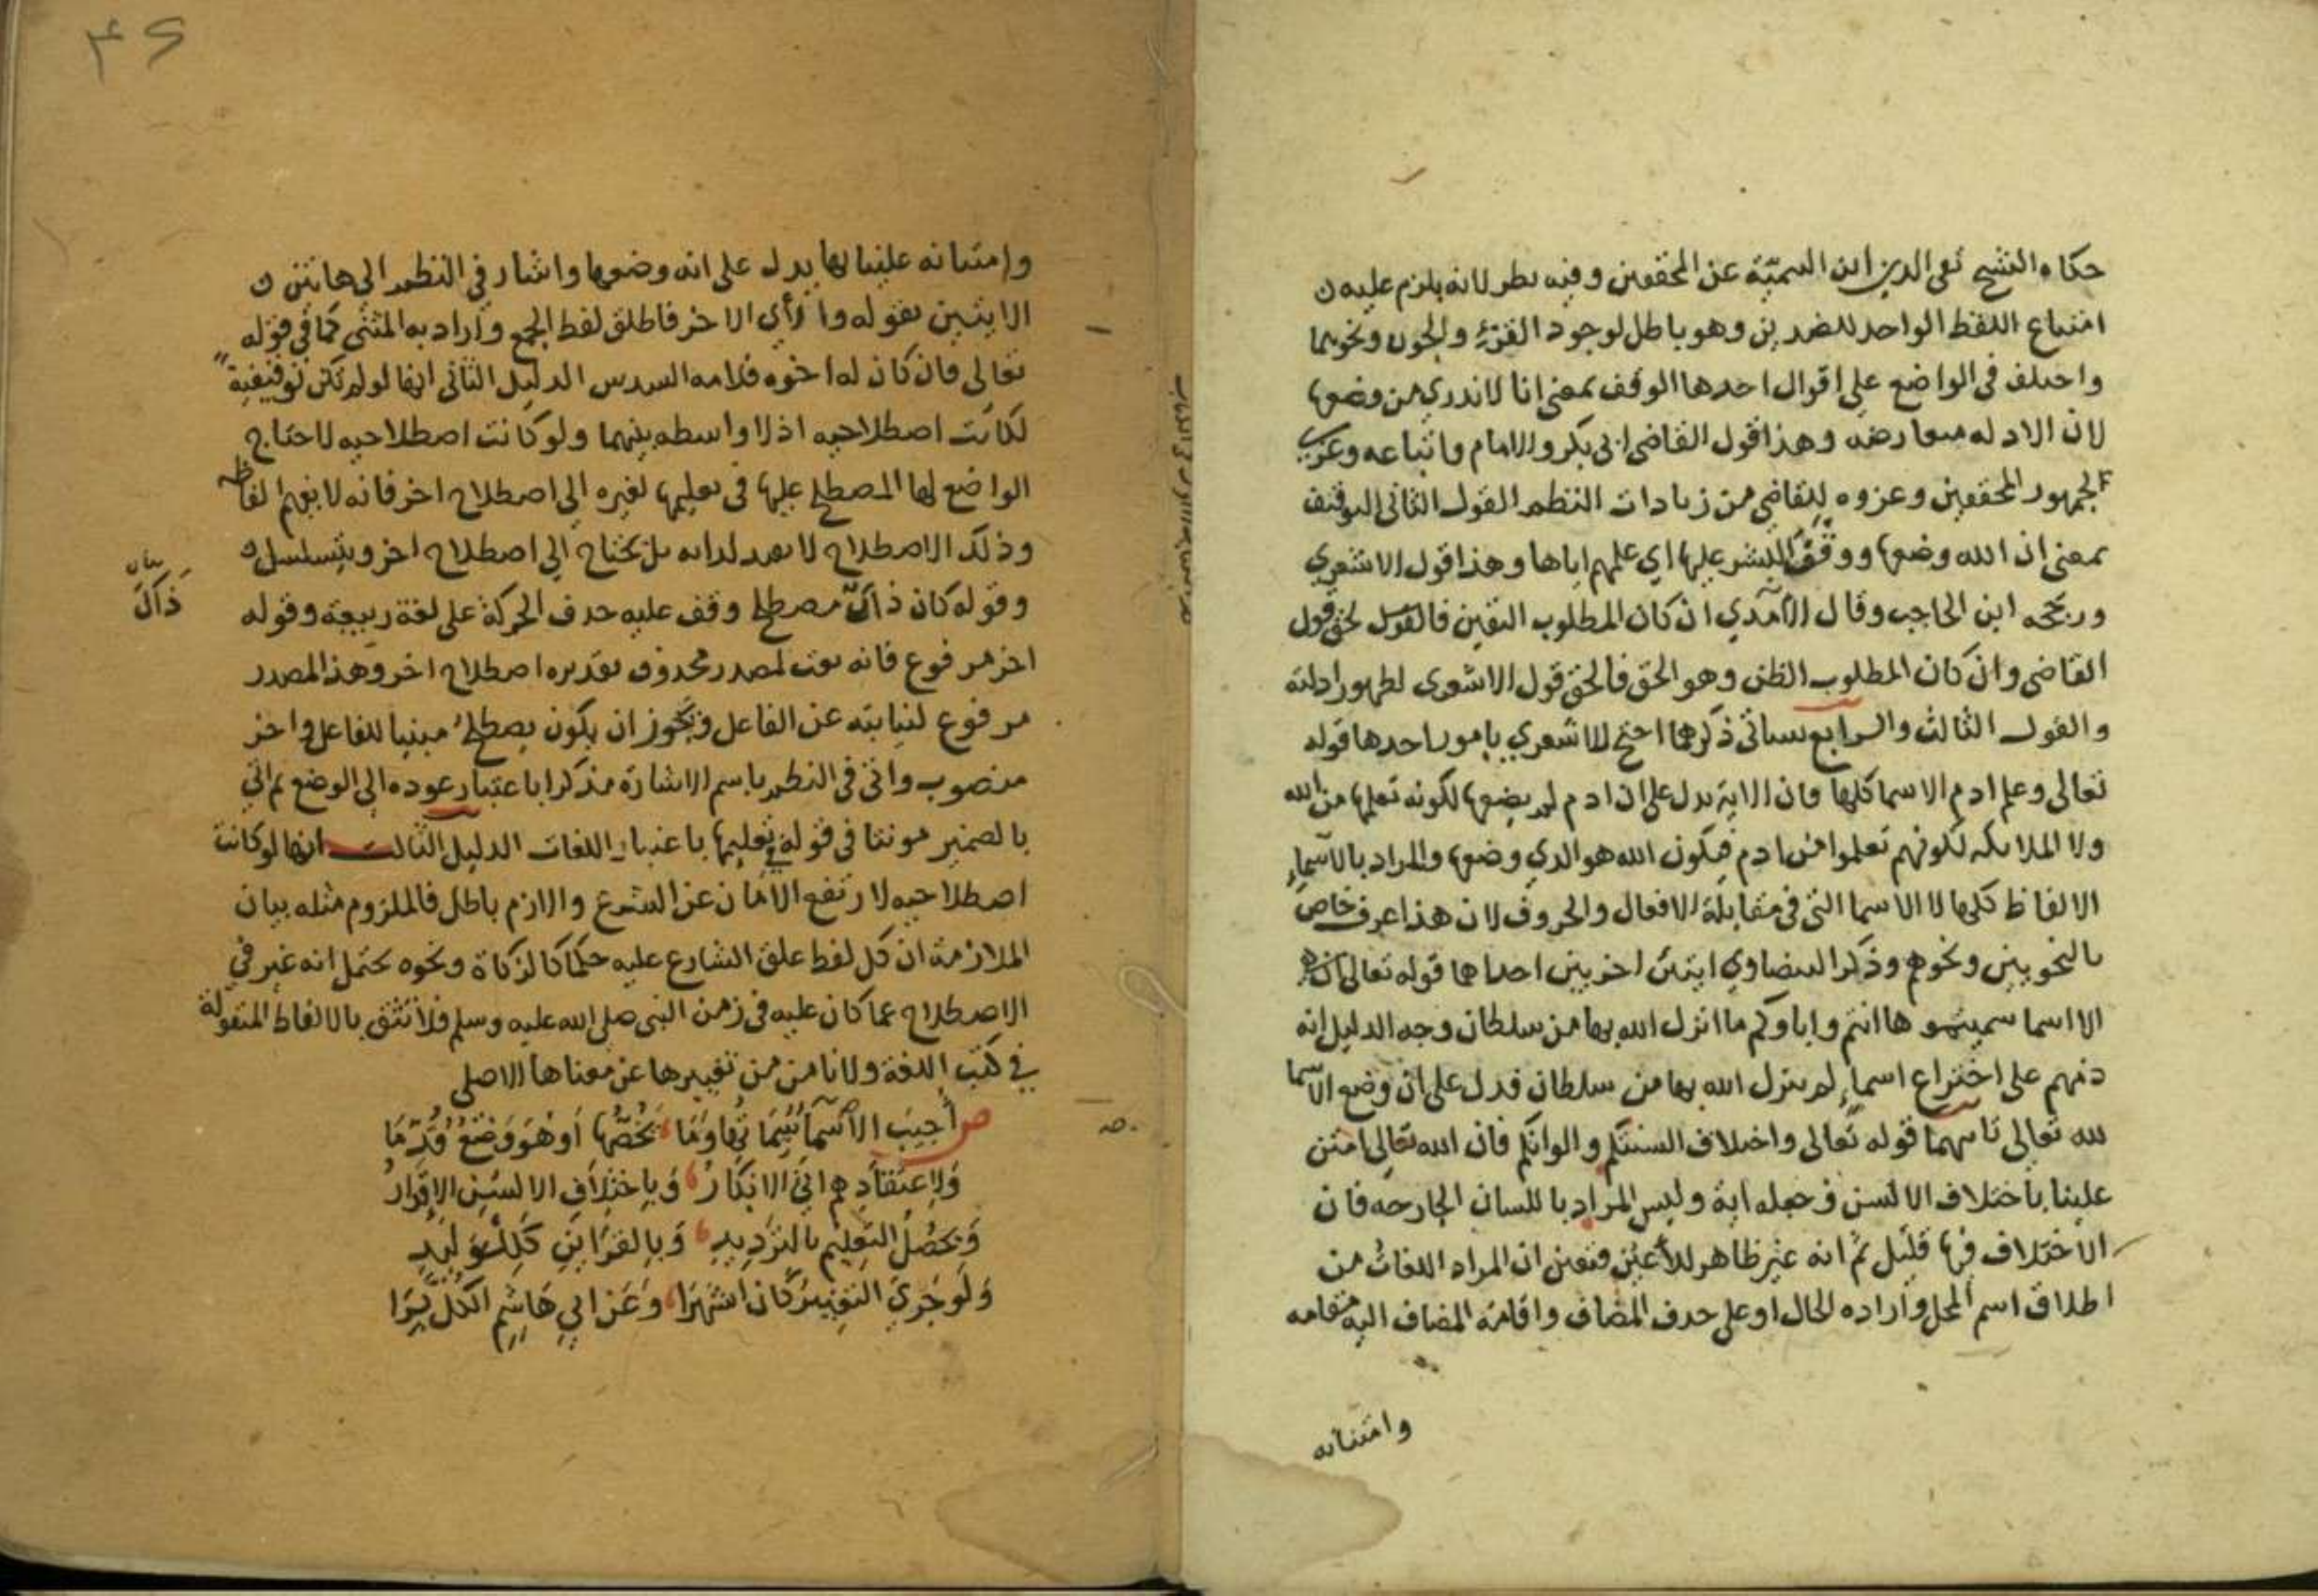 حكاه الشيخ تقي الدين ابن السميّة عن المحققين وفيه نظر لانه يلزم عليه
امتناع اللفظ الواحد للضدين وهو باطل لوجود القرء والجون ونحوهما
واختلف في الواضع على اقوال احدها الوقف بمعنى انا لا ندري من وضعها
لان الادله متعارضه وهذا قول القاضي ابي بكر والامام واتباعه وعزي
لجمهور المحققين وعزوه للقاضي من زيادات النظم القول الثاني التوقيف
بمعنى ان الله وضعها ووقف البشر عليها اي علمهم اياها وهذا قول الاشعري
ورجحه ابن الحاجب وقال الآمدي ان كان المطلوب اليقين فالقول لحق قول
القاضي وان كان المطلوب الظن وهو الحق فالحق قول الاشعرى لظهور ادلته
والقول الثالث والرابع سياتي ذكرهما احتج الاشعري بامور احدها قوله
تعالى وعلم ادم الاسما كلها فان الاية تدل على ان ادم لم يضعها لكونه تعلمها من الله
ولا الملايكه لكونهم تعلموا من ادم فيكون الله هو الذي وضعها والمراد بالاسماء
الالفاظ كلها لا الاسما التي في مقابلة الافعال والحروف لان هذا عرف خاص
بالنحويين ونحوهم وذكر البيضاوي ايتين اخريين احداها قوله تعالى ان هي
الا اسما سميتموها انتم واباوكم ما انزل الله بها من سلطان وجه الدليل انه
ذمهم على اختراع اسماء لم ينزل الله بها من سلطان فدل على ان وضع الاسما
لله تعالى ثانيهما قوله تعالى واختلاف السنتكم والوانكم فان الله تعالى امتن
علينا باختلاف الالسن وجعله اية وليس المراد باللسان الجارحه فان
الاختلاف فيها قليل ثم انه غير ظاهر للأعين فتعين ان المراد اللغات من
اطلاق اسم المحل وارادة الحال او على حدف المضاف واقامة المضاف اليه مقامه
وامتنانه
٤٦
وامتنانه علينا بها يدل على انه وضعها واشار في النظم الى هاتين
الايتين بقوله وا رأي الاخر فاطلق لفظ الجمع واراد به المثنى كما في قوله
تعالى فان كان له اخوه فلامه السدس الدليل الثاني انها لو لم تكن توقيفية
لكانت اصطلاحيه اذ لا واسطه بينهما ولو كانت اصطلاحيه لاحتاج
الواضع لها المصطلح عليها في تعليمها لغيره الى اصطلاح اخر فانه لا يفهم لفاظه
وذلك الاصطلاح لا يفيد لذاته بل يحتاج الى اصطلاح اخر ويتسلسل
وقوله كان ذاك مصطلح وقف عليه حدف الحركة على لغة ربيعة وقوله
بيان
ذَاكَ
اخر مرفوع فانه نعت لمصدر محذوف تقديره اصطلاح اخر وهذا المصدر
مرفوع لنيابته عن الفاعل ويجوز ان يكون يصطلح مبنيا للفاعل واخر
منصوب واتى في النظم باسم الاشارة مذكرا باعتبار عوده الى الوضع ثم اتي
بالضمير مونثا في قوله في تعليمها باعتبار اللغات الدليل الثالث انها لو كانت
اصطلاحيه لارتفع الامان عن الشرع والازم باطل فالملزوم مثله بيان
الملازمة ان كل لفظ علق الشارع عليه حكما كالزكاة ونحوه يحتمل انه غير في
الاصطلاح عما كان عليه في زمن النبي صلى الله عليه وسلم فلا نثق بالالفاظ المنقولة
في كتب اللغة ولا نامن من تغييرها عن معناها الاصلى
ص أُجِيبَ الأسْمَا سِيمَا تُها وَمَا يَخُصُّها أَوْ هُوَ وَضْعٌ قُدِّمَا
وَلِاعْتِقَادِهِم اتى الانْكَارُ وَبِاخْتِلافِ الالسُنِ الإقْرَارُ
وَيَحْصُلُ التعلِيم بالترْدِيدِ وَبِالقَرَايِنِ كَلِلْوَلِيدِ
وَلَو جَرَى التغيِيرُ كَانَ اشتَهَرَا وَعَن ابي هَاشِمٍ الكُلُّ يَرَا